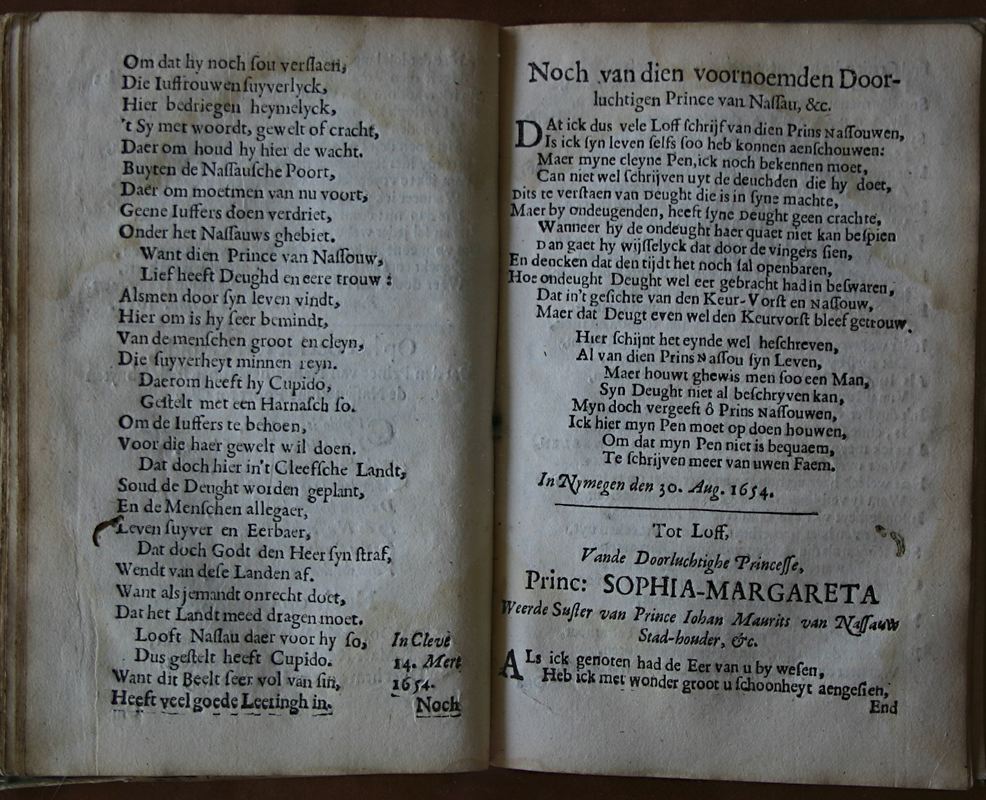 Om dat hy noch sou verslaen,
Die Iuffrouwen suyverlyck,
Hier bedriegen heymelyck,
't Sy met woordt, gewelt of cracht,
Daer om houd hy hier de wacht.
Buyten de Nassausche Poort,
Daer om moetmen van nu voort,
Geene Iuffers doen verdriet,
Onder het Nassauws ghebiet.
Want dien Prince van Nassouw,
Lief heeft Deughd en eere trouw:
Alsmen door syn leven vindt,
Hier om is hy seer bemindt,
Van de menschen groot en cleyn,
Die suyverheyt minnen reyn.
Daerom heeft hy Cupido,
Gestelt met een Harnasch so.
Om de Iuffers te behoen,
Voor die haer gewelt wil doen.
Dat doch hier in't Cleefsche Landt,
Soud de Deught worden geplant,
En de Menschen allegaer,
Leven suyver en Eerbaer,
Dat doch Godt den Heer syn straf,
Wendt van dese Landen af.
Want als jemandt onrecht doet,
Dat het Landt meed dragen moet.
Looft Nassau daer voor hy so,
Dus gestelt heeft Cupido.
Want dit Beelt seer vol van sin,
Heeft veel goede Leeringh in.
In Clevê
14. Mert
1654.
Noch
Noch van dien voornoemden Door-
luchtigen Prince van Nassau, &c.
DAt ick dus vele Loff schrijf van dien Prins Nassouwen,
Is ick syn leven selfs soo heb konnen aenschouwen:
Maer myne cleyne Pen, ick noch bekennen moet,
Can niet wel schrijven uyt de deuchden die hy doet,
Dits te verstaen van Deught die is in syne machte,
Maer by ondeugenden, heeft syne Deught geen crachte,
Wanneer hy de ondeught haer quaet niet kan bespien
Dan gaet hy wijsselyck dat door de vingers sien,
En dencken dat den tijdt het noch sal openbaren,
Hoe ondeught Deught wel eer gebracht had in beswaren,
Dat in't gesichte van den Keur-Vorst en Nassouw,
Maer dat Deugt even wel den Keurvorst bleef getrouw.
Hier schijnt het eynde wel beschreven,
Al van dien Prins Nassou syn Leven,
Maer houwt ghewis men soo een Man,
Syn Deught niet al beschryven kan,
Myn doch vergeeft ô Prins Nassouwen,
Ick hier myn Pen moet op doen houwen,
Om dat myn Pen niet is bequaem,
Te schrijven meer van uwen Faem.
In Nymegen den 30. Aug. 1654.
Tot Loff,
Vande Doorluchtighe Princesse,
Princ: SOPHIA-MARGARETA
Weerde Suster van Prince Iohan Maurits van Nassauw
Stad-houder, &c.
ALs ick genoten had de Eer van u by wesen,
Heb ick met wonder groot u schoonheyt aengesien,
End